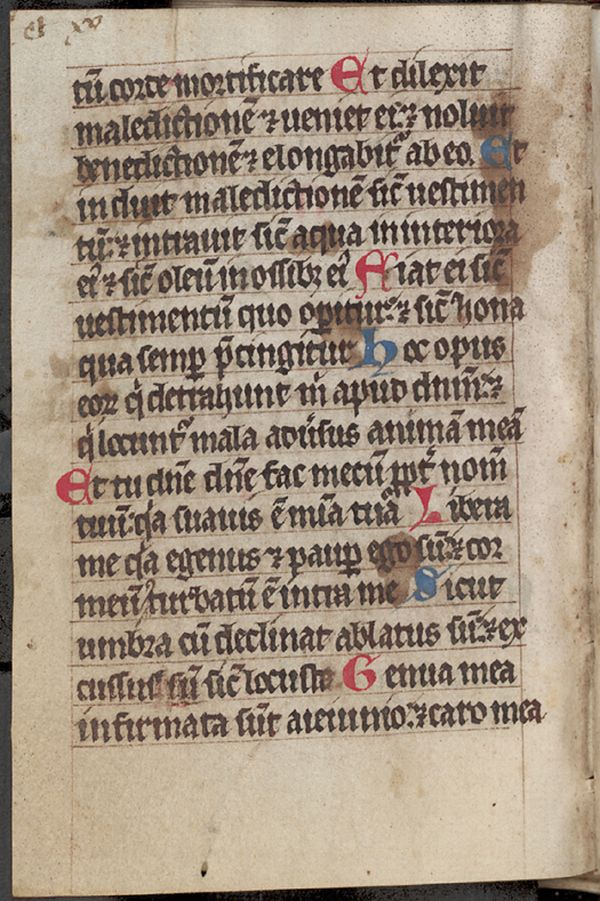 tū corde mortificare Et dilexit
maledictionē ⁊ ueniet ei: ⁊ noluit
benedictionē ⁊ elongabit᷑ ab eo. Et
induit maledictionē sic̄ uestimen
tū: ⁊ intrauit sic̄ aqua in interiora
eiꝰ ⁊ sic̄ oleū in ossibꝫ eiꝰ Fiat ei sic̄
uestimentū quo operit᷑: ⁊ sic̄ zona
qua semꝑ p̄cingitur Hoc opus
eoꝝ q̇ detrahunt m̄ apud dn̄m: ⁊
q̇ locunt᷑ mala adūsus animā meā
Et tu dn̄e dn̄e fac mecū ꝓpt᷑ nom̄
tuū: q̇a suauis ē mīa tua Libera
me q̇a egenus ⁊ pauꝑ ego sū: ⁊ cor
meū turbatū ē intra me Sicut
umbra cū declinat ablatus sū: ⁊ ex
cussus sū sic̄ locuste Genua mea
infirmata sūt a ieiunio: ⁊ caro mea